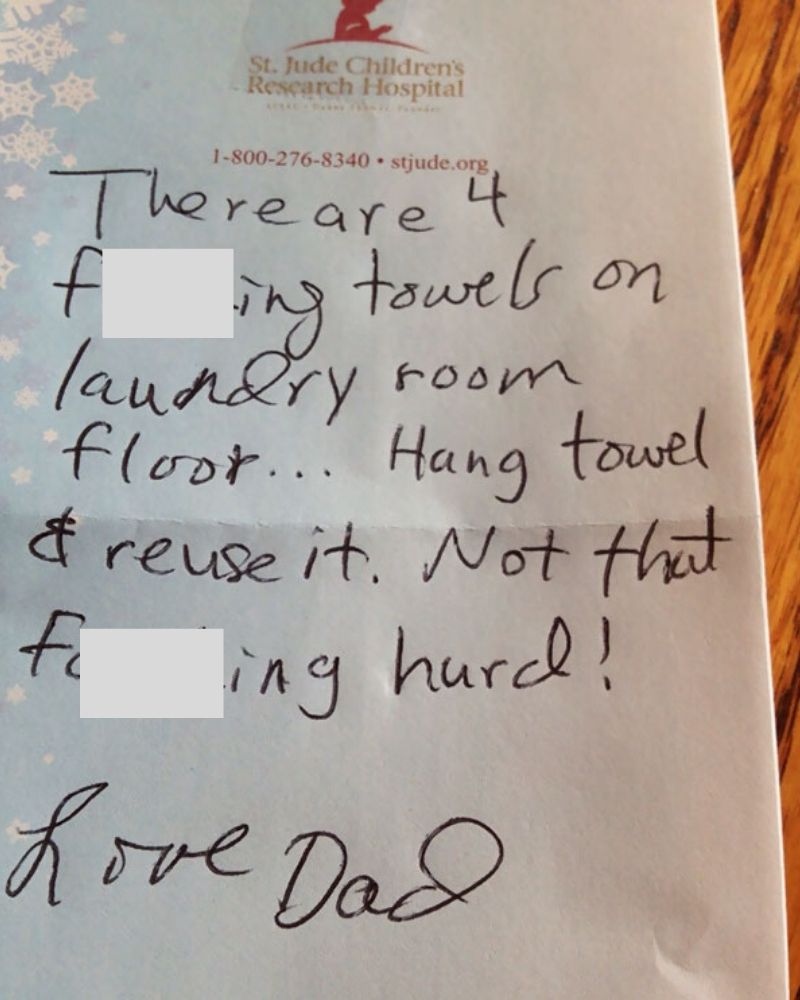 St. Jude Children's
Research Hospital
1-800-276-8340 • stjude.org
There are 4
f ing towels on
laundry room
floor... Hang towel
& reuse it. Not that
f ing hard!
Love Dad